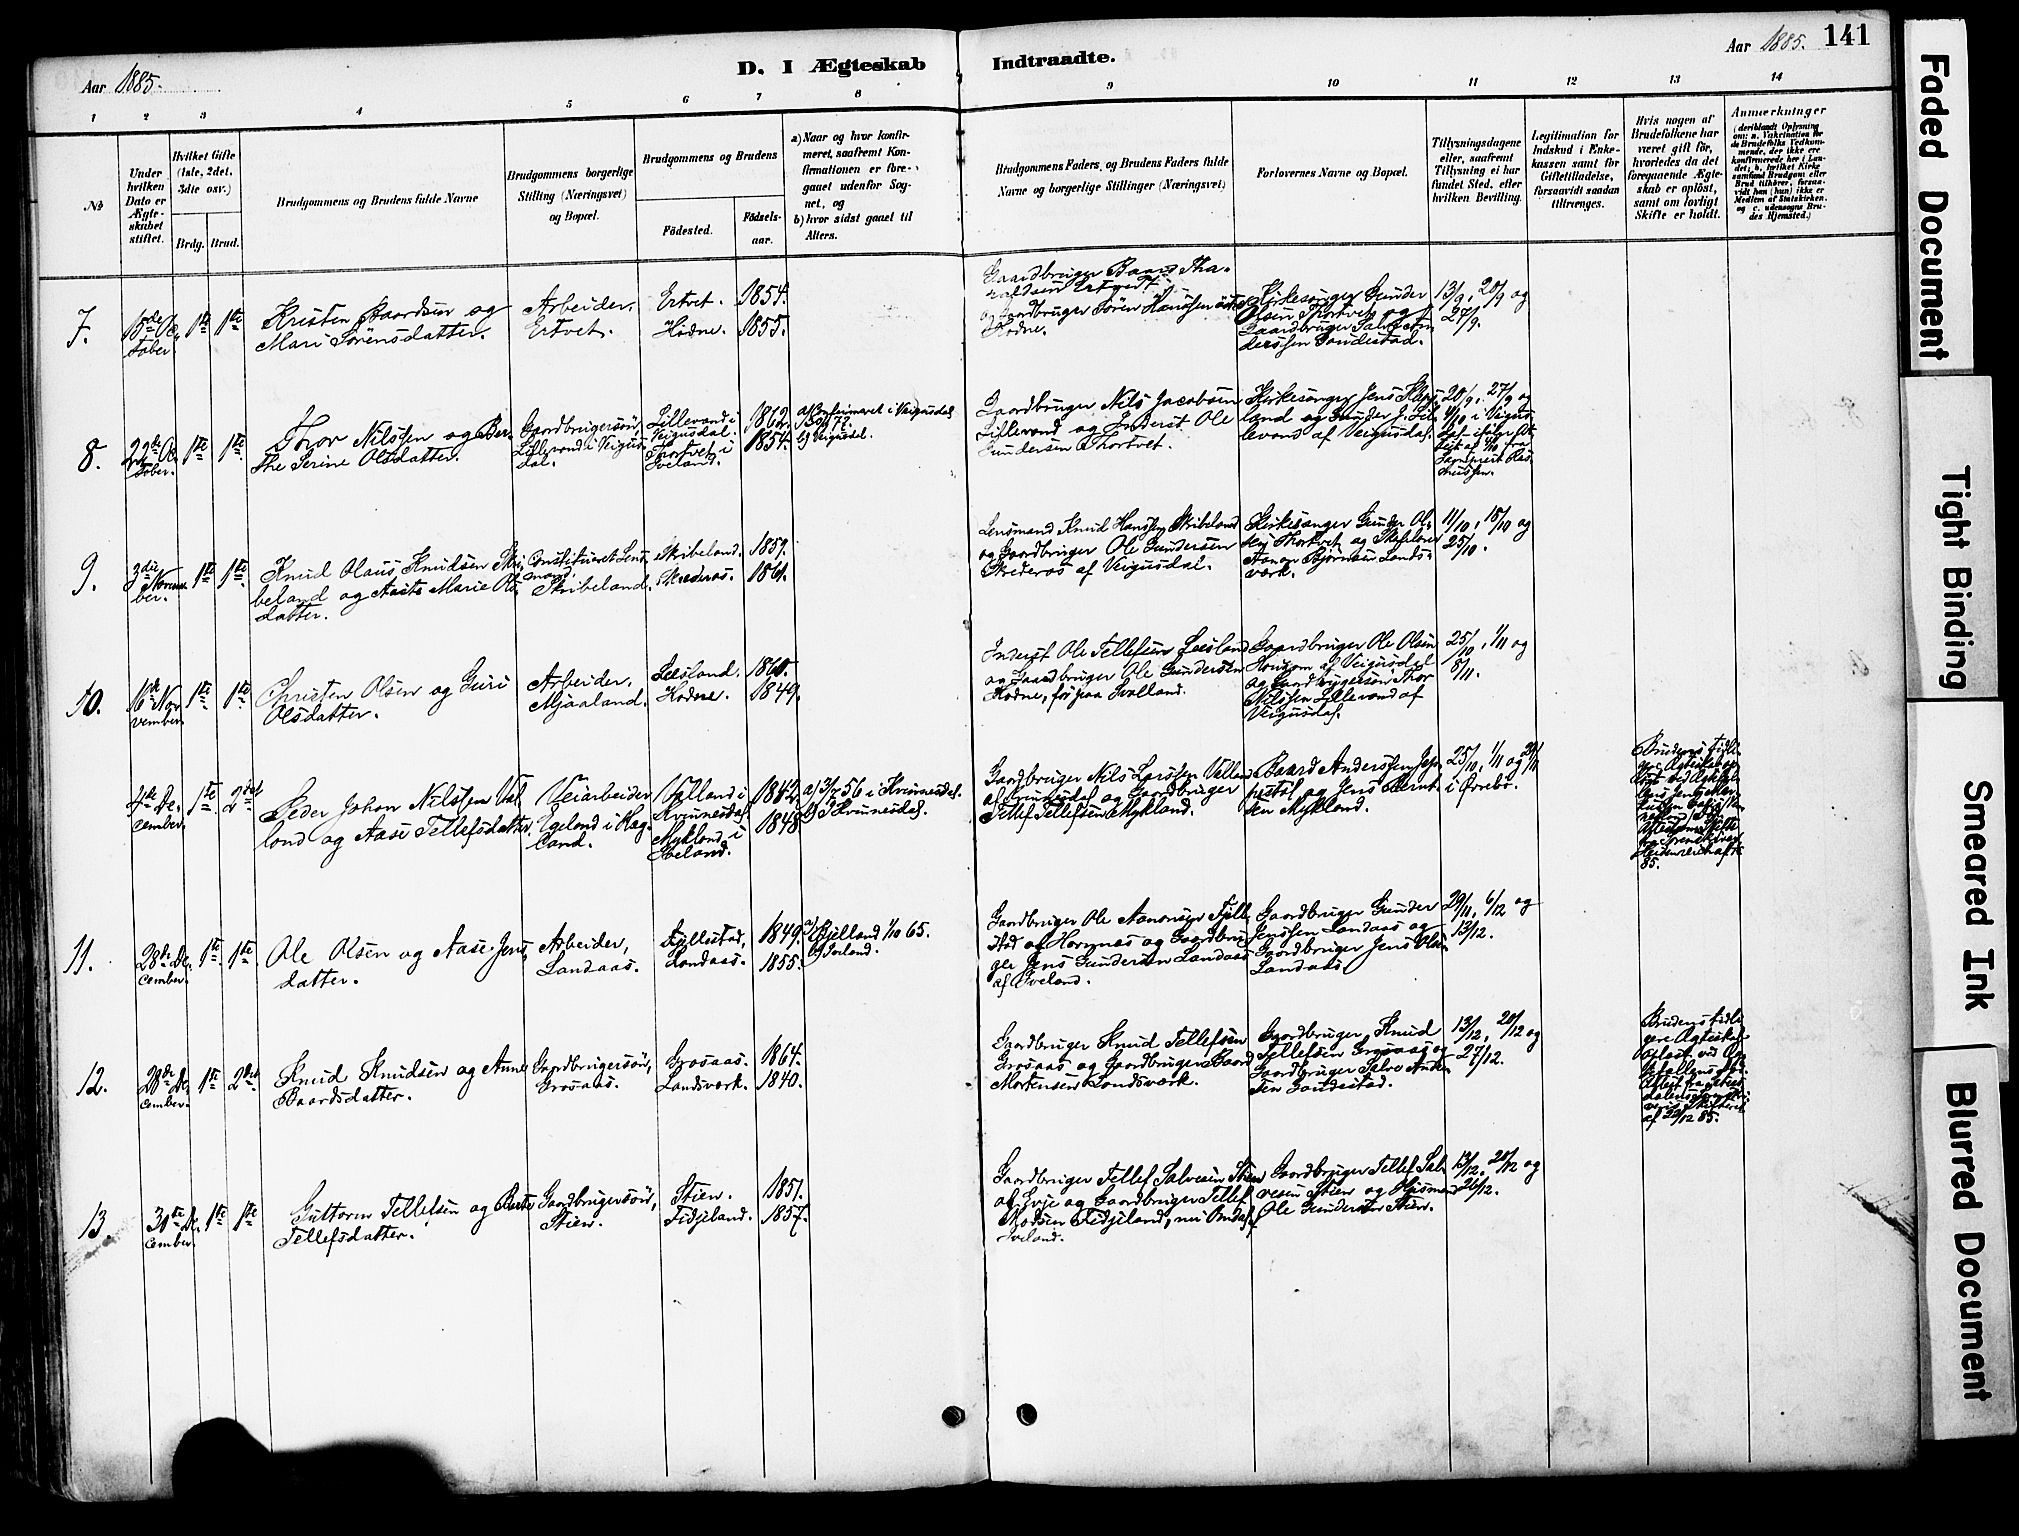 Aar 1885.
D. I Ægteskab Indtraadte.
Aar 1885. 141
1 2 3 4 5 6 7 8 9 10 11 12 13 14
No
Under hvilken Dato er Ægteskabet stiftet.
Hvilket Gifte (1ste, 2det, 3die osv.)
Brdg. Brud.
Brudgommens og Brudens fulde Navne
Brudgommens borgerlige Stilling (Næringsvei) og Bopæl.
Brudgommens og Brudens
Födested.
Födsels-aar.
a) Naar og hvor konfir-
meret, saafremt Kon-
firmationen er fore-
gaaet udenfor Sog-
net, og
b) hvor sidst gaaet til
Alters.
Brudgommens Faders, og Brudens Faders fulde
Navne og borgerlige Stillinger (Næringsvei)
Forlovernes Navne og Bopæl.
Tillysningsdagene
eller, saafremt
Tillysning ei har
fundet Sted, efter
hvilken Bevilling.
Legitimation for
Indskud i Enke-
kassen samt for
Giftetilladelse,
forsaavidt saadan
tiltrænges.
Hvis nogen af
Brudefolkene har
været gift før,
hvorledes da det
foregaaende Ægte-
skab er oplöst,
samt om lovligt
Skifte er holdt.
Anmærkninger
7. 15de Oc-
tober. 1ste 1ste
Kristen Baardsen og
Mari Sörensdatter.
Arbeider.
Ertvet.
Ertvet. 1854.
Hodne. 1855.
Gaardbruger Baard Tha-
raldsen Ertvedt
og Gaardbruger Sören Hanssen
Hodne.
Kirkesanger Gunder
Olsen Thortvet og
Gaardbruger Salve An-
derssen Sandestad.
13/9, 20/9 og
27/9.
8. 22de Oc-
tober. 1ste 1ste
Thor Nilssen og Ber-
the Serine Olsdatter.
Gaardbrugersön,
Lillevand i Veigus-
dal.
Lillevand i
Veigusdal. 1862.
Thortvet i
Iveland. 1854.
a) Konfirmeret i Veigusdal
b) Veigusdal.
Gaardbruger Nils Jacobsen
Lillevand og Inderst Ole
Gundersen Thortvet.
Kirkesanger Jens
land og Gunder J. Lil-
levand af Veigusdal.
20/9, 27/9 og
4/10 i Veigus-
dal
9. 3die
Novem-
ber. 1ste 1ste
Knud Olaus Knudsen Skri-
beland og Aaste Marie Ols-
datter.
Constitueret Lens-
mand
Skribeland.
Skribeland. 1859.
Skrederos. 1861.
Lensmand Knud Hanssen Skribeland
og Gaardbruger Ole Gundersen
Skrederos af Veigusdal.
Kirkesanger Gunder Ol-
sen Thortvet og
Aanon Björnsen Lands-
værk.
11/10, 18/10 og
25/10.
10. 16de No-
vember. 1ste 1ste
Christen Olsen og Guri
Olsdatter.
Arbeider.
Mjaaland.
Leesland. 1860.
Hodne. 1849.
Inderst Ole Tellefsen Leesland
og Gaardbruger Ole Gundersen
Hodne, før paa
Gaardbruger Ole Olsen
af Veigusdal
og Gaardbrugersön Thor
Nilssen Lillevand af
Veigusdal.
25/10, 1/11 og
8/11.
4de De-
cember. 1ste 2det
Peder Johan Nilssen Vol-
land og Aase Tellefsdatter.
Veiarbeider
Egeland i Hæg-
land.
Volland i
Kvinnesdal. 1842.
Mykland i
Iveland. 1848.
a) 56 i Kvinnesdal.
b) Kvinnesdal.
Gaardbruger Nils Larssen Volland
af Kvinnesdal og Gaardbruger
Tellef Tellefsen Mykland.
Baard Anderssen
og Jens Bernt-
sen Mykland.
25/10, 1/11 og
i Övrebö.
Brudens tidli-
gere Ægteskab
85.
11. 28de De-
cember. 1ste 1ste
Ole Olsen og Aase Jens-
datter.
Arbeider,
Landaas.
Fjellestad, 1849.
Landaas. 1855.
a) Bjelland 1/10 65.
b) Iveland.
Gaardbruger Ole Aanonsen Fjelle-
stad af Hornnæs og Gaardbru-
ger Jens Gundersen Landaas
af Iveland.
Gaardbruger Gunder
Jenssen Landaas og
Gaardbruger Jens Olsen
Landaas
29/11, 6/12 og
13/12.
12. 28de De-
cember. 1ste 2det
Knud Knudsen og Anne
Baardsdatter.
Gaardbrugersön,
Grosaas.
Grosaas. 1864.
Landsværk. 1840.
Gaardbruger Knud Tellefsen
Grosaas og Gaardbruger Baard
Mortensen Landsværk.
Gaardbruger Knud
Tellefsen Grosaas og
Gaardbruger Salve Ander-
sen Sandestad.
13/12, 20/12 og
27/12.
Brudens tidli-
gere Ægteskab
oplöst ved
af 22/12 85.
13. 31te De-
cember. 1ste 1ste
Guttorm Tellefsen og
Tellefsdatter.
Gaardbrugersön,
Stien.
Stien. 1851.
Fidjeland. 1857.
Gaardbruger Tellef Salvesen Stien
af Evje og Gaardbruger Tellef
Fidjeland, nu
Iveland.
Gaardbruger Tellef Sal-
vesen Stien og Husmand
Ole Gundersen Stien.
13/12, 20/12 og
26/12.
Faded Document
Tight Binding
Smeared Ink
Blurred Document